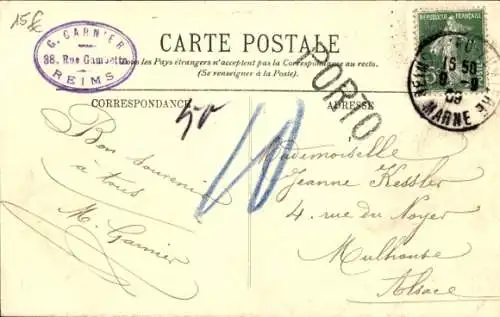 15€
G. GARNIER
38, Rue Gambetta
REIMS
CARTE POSTALE
les Pays étrangers n'acceptent pas la Correspondance au recto.
(Se renseigner à la Poste).
REPUBLIQUE FRANÇAISE
5
REIMS
15 50
9 - 9
09
MARNE
PORTO
CORRESPONDANCE
ADRESSE
50
10
Bon Souvenir
à tous
M. Garnier
Mademoiselle
Jeanne Kessler
4, rue du Noyer
Mulhouse
Alsace